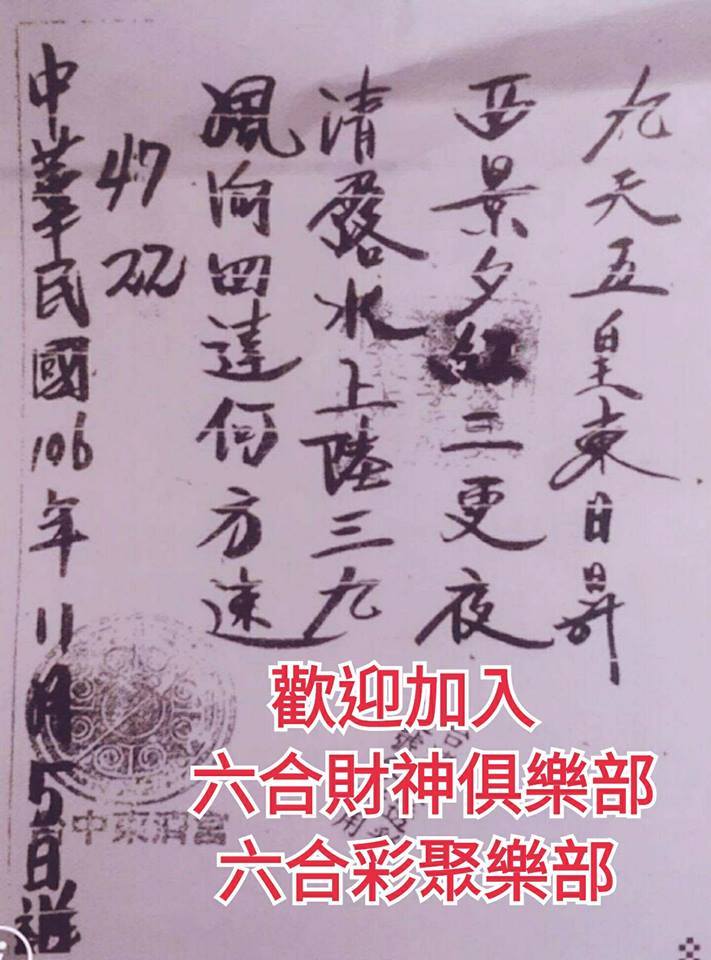 九天五皇東日昇
西景夕紅三更夜
清露水上陸三九
風向四達何方速
47
22
中華民國106年11月5日
中東濟宮
歡迎加入
六合財神俱樂部
六合彩聚樂部